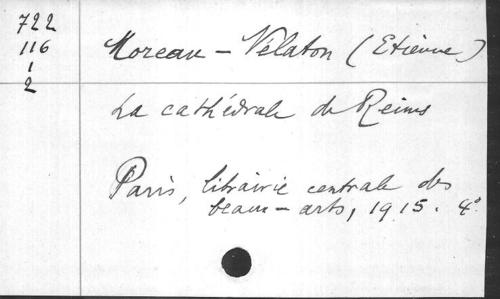 722
116
1
2
Moreau - Vélaton (Etienne)
La cathédrale de Reims
Paris, librairie centrale des
beaux-arts, 1915. 4°